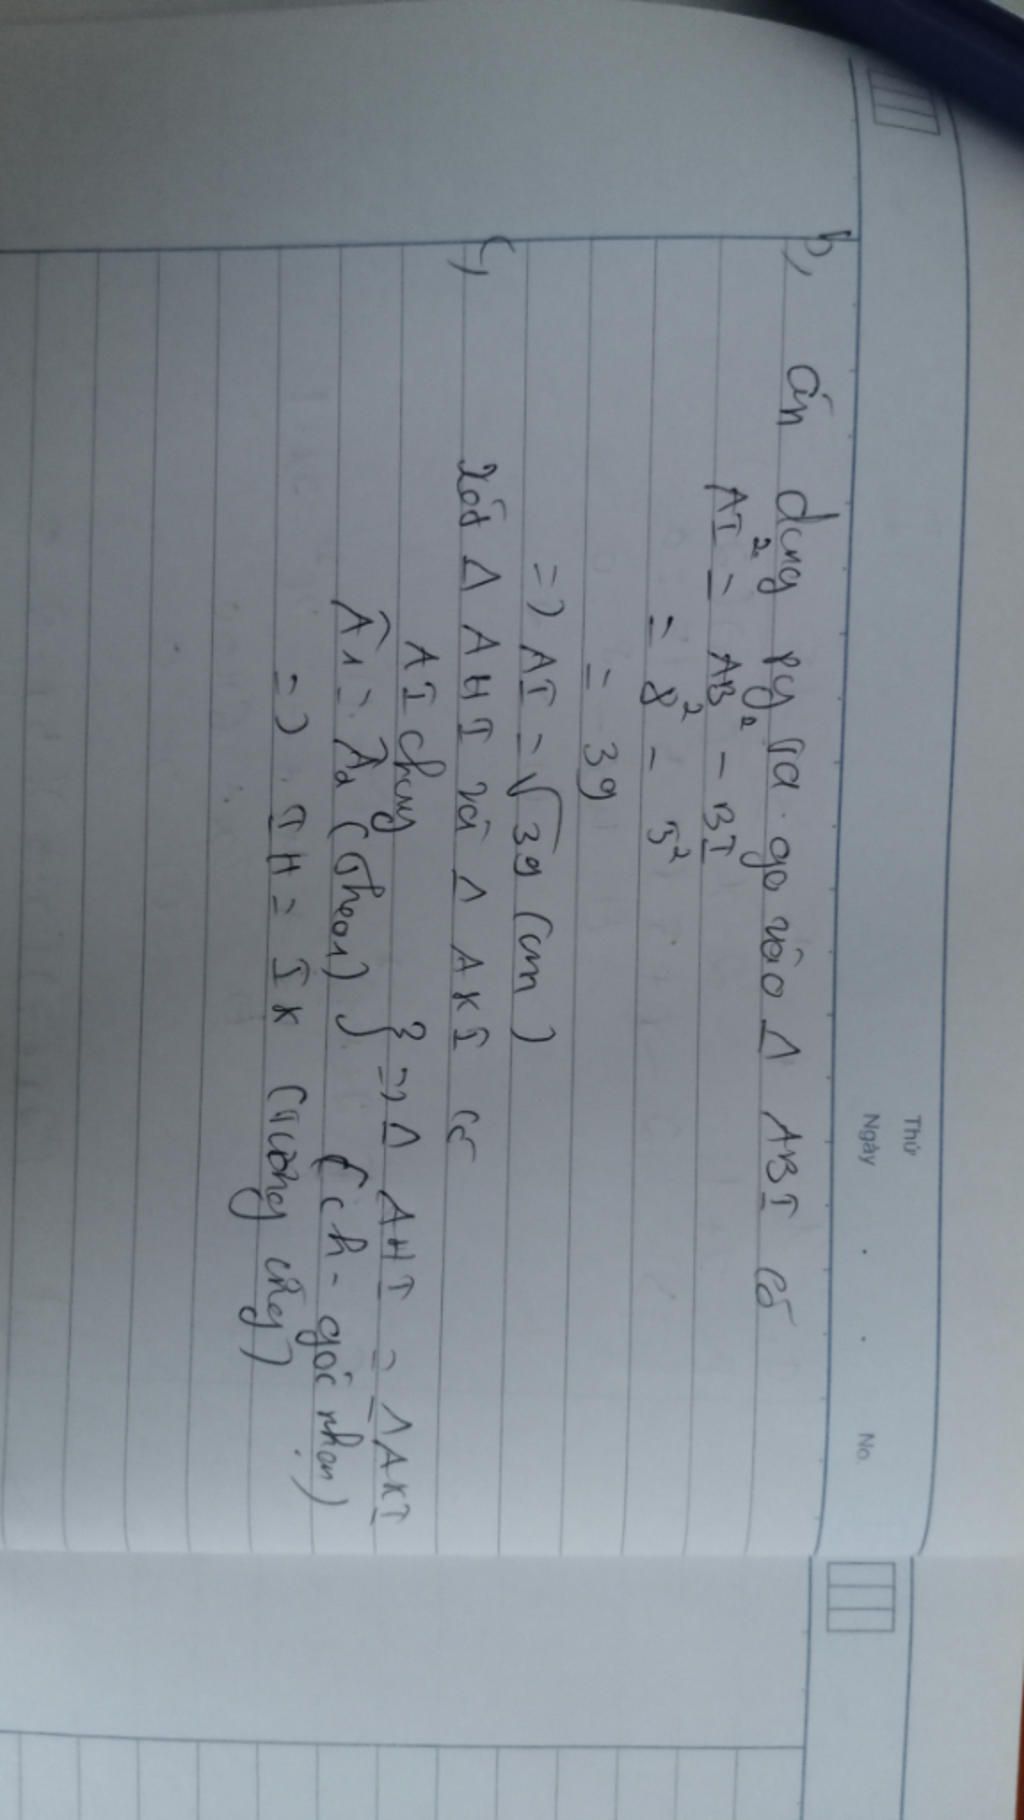 Thứ
Ngày . . No.
b, áp dụng pytago vào Δ ABI có
AI² = AB² - BI²
= 8² - 5²
= 39
=> AI = √39 (cm)
c, xét Δ AHI và Δ AKI có
AI chung
Â1 = Â2 (theo a) } => Δ AHI = Δ AKI
(ch - góc nhọn)
=> IH = IK (tương ứng)